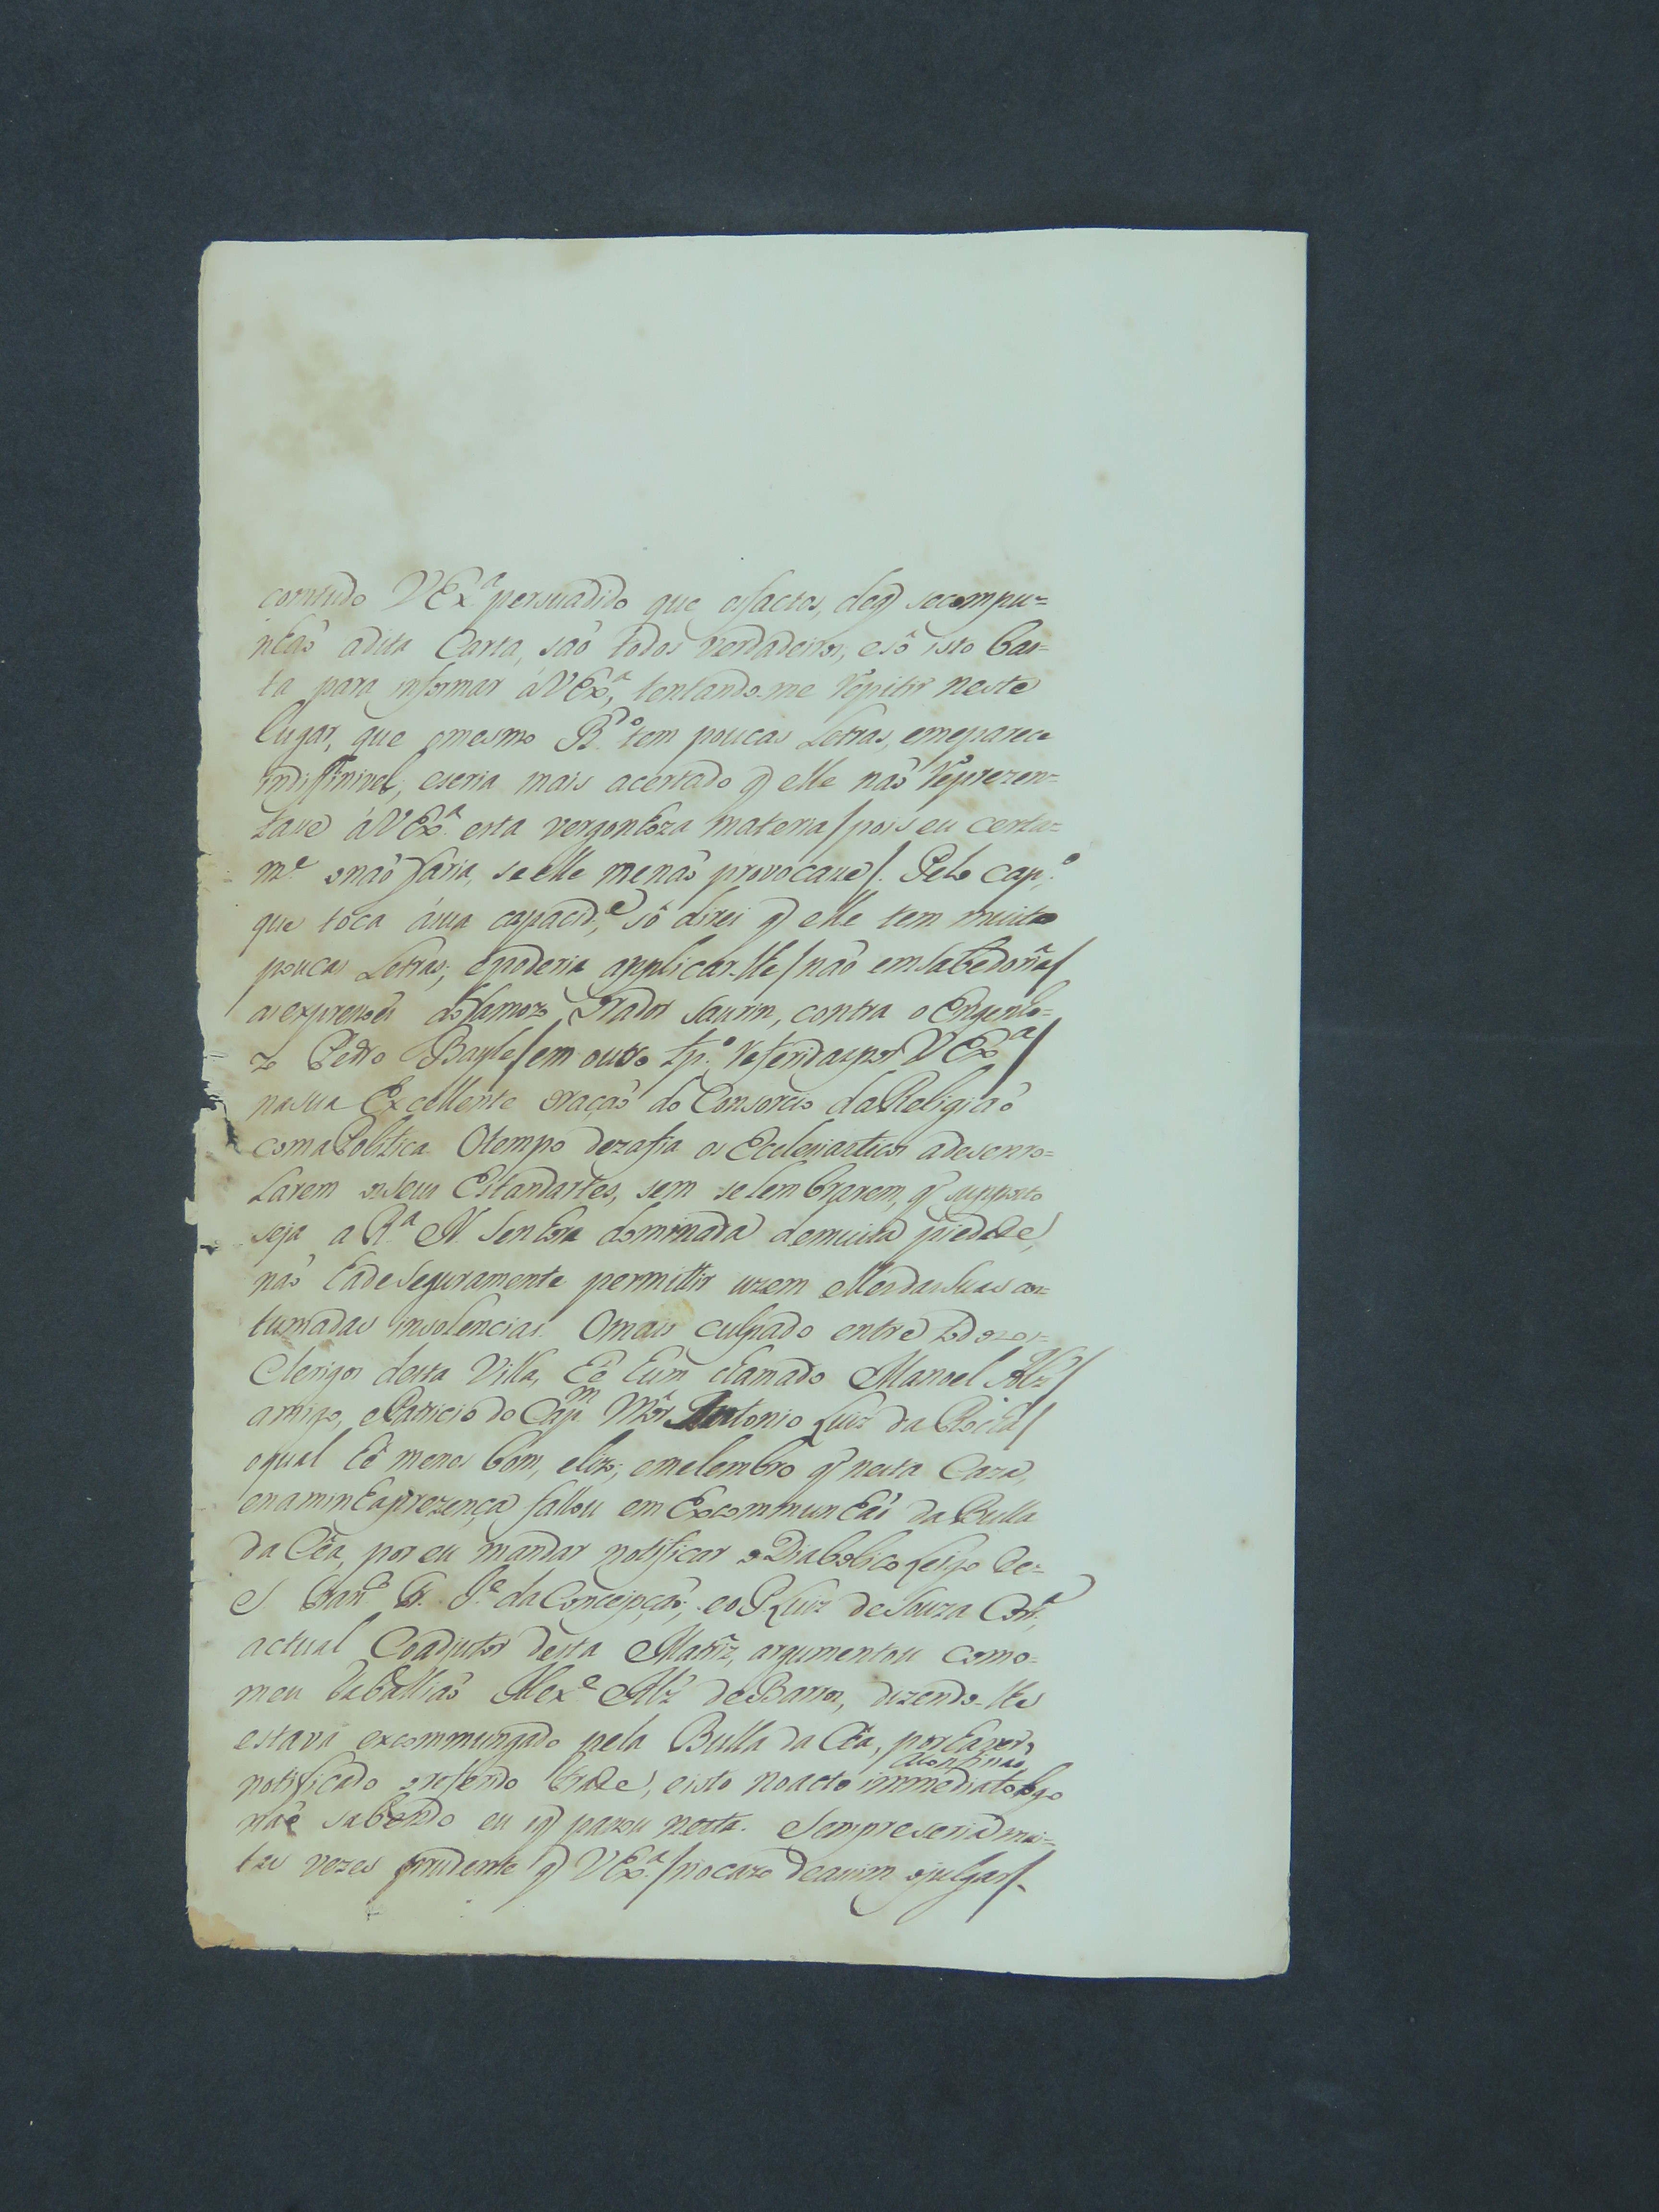 comtudo VEx.ª persuadido que osfactos, deq̃ secompu=
nhaõ adita Carta, saõ todos verdadeiros, esó isto bas=
ta para informar áVEx.ª, tentando-me repitir neste
lugar, que omesmo R.do tem poucas Letras, emeparece
indiffinivel, eseria mais acertado q̃ elle naõ reprezen=
tase áVEx.ª esta vergonhoza materia/pois eu certa=
m.e onaõ faria, seelle menaõ provocase/. Pelo cap.º
que toca ásua capacid.e, só direi q̃ elle tem muito
poucas Letras; epoderia applicar-lhe/não emsabedoria/
asexpresoes dofamozo Orador Saurin, contra o Engenho=
zo Pedro Bayle/em outro tp.º referidas por VEx.ª/
nasua Excellente oraçaõ do Consorcio daReligiaõ
comaPolitica. Otempo dezafia os Eccleziasticos adesenro=
larem osseus Estandartes, sem selembrarem, q̃ supposto
seja a R.ª N. Senhora dominada demuita piedade,
naõ hade seguramente permittir uzem ellesdassuas cos=
tumadas insolencias. Omais culpado entre todos os=
Clerigos desta Villa, hé hum chamado Manoel Alz/
amigo, ePatricio do Cap.m Mór Antonio Luiz da Rocha/
oqual hé menos bom, elizo; emelembro q̃ nesta Caza,
enaminhaprezença fallou em Excommunhaõ da Bulla
da Cêa, por eu mandar notificar oDiabolico Leigo de=
S. Fran.co Fr. J.e da Concepçaõ; eoP. Luiz deSouza Corr.ª,
actual Coadjutor desta Matriz, argumentou como=
meu Taballiaõ Alex.e Alz' deBarros, dizendo-lhe
estava excommungado pela Bulla da Cêa, porhaver,
notificado oreferido Frade, eisto noacto immediato logo
acontinaõ,
não sabendo eu oq̃ parou nesta. Sempre seria mui=
tas vezes prudente q̃ VEx.ª/nocazo deassim ojulgar/-